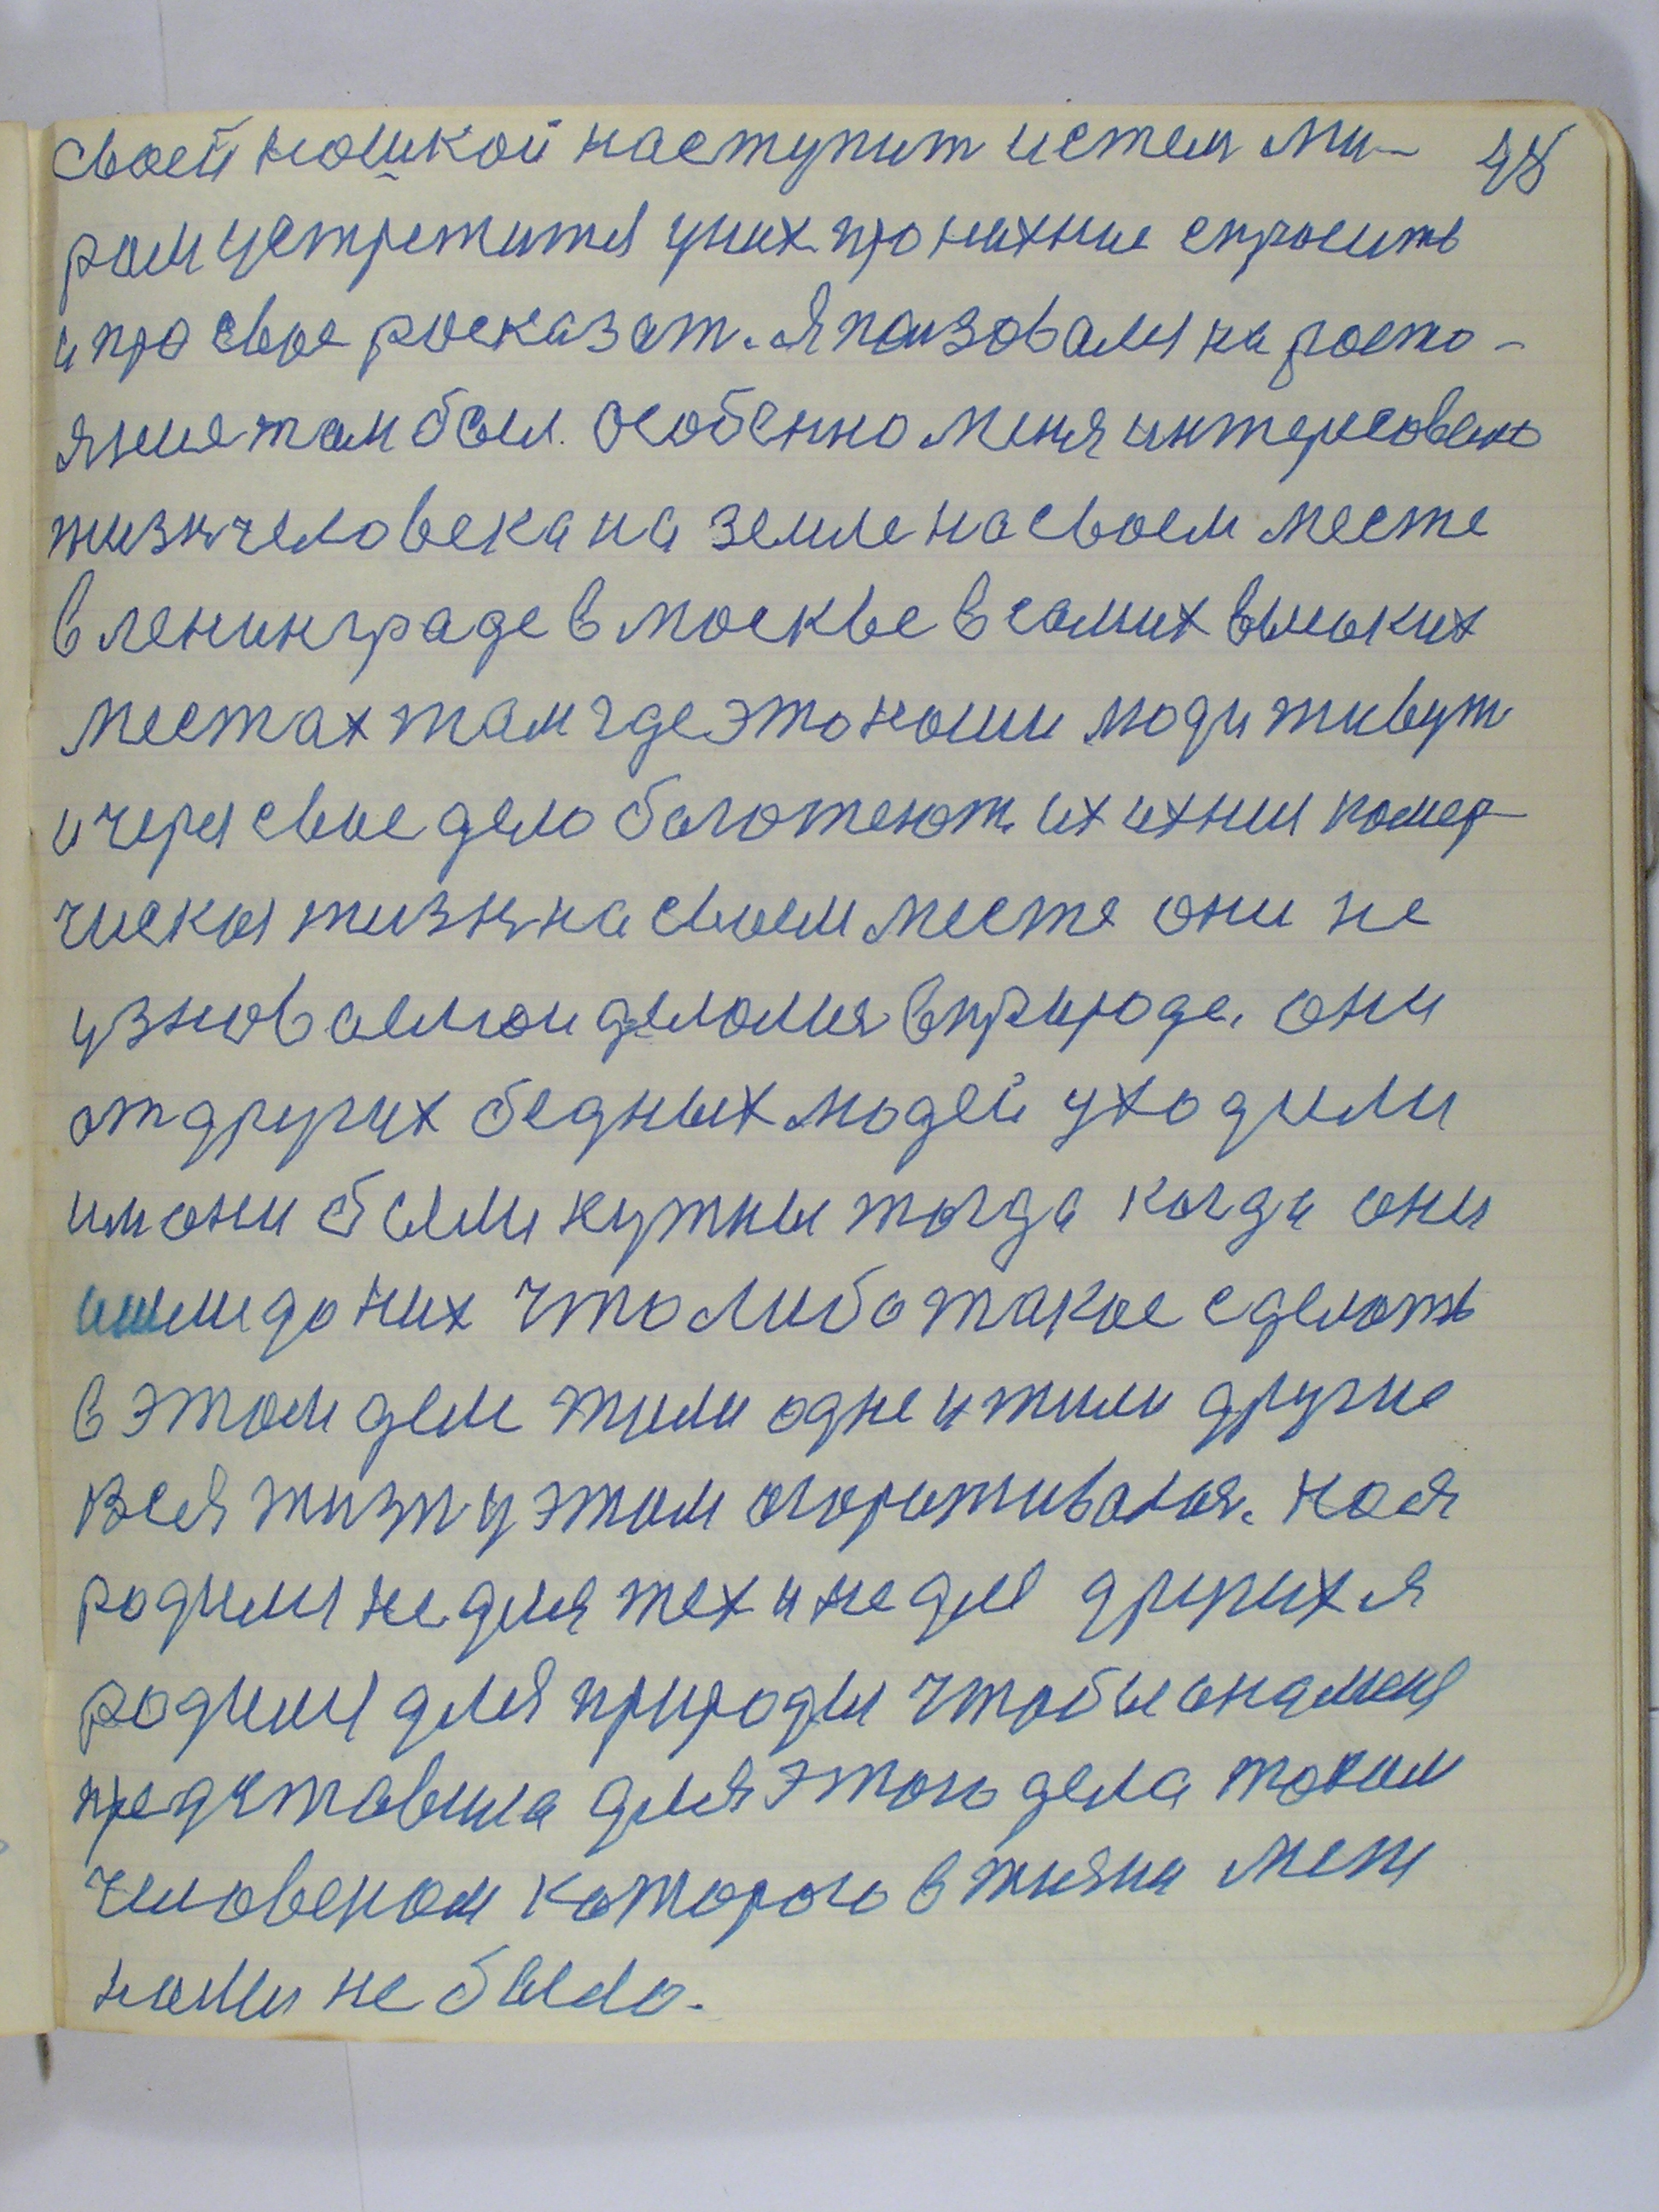 своей ножкой наступит и стем ми- 48
ром устретится у них про нихние спросить
и про свое росказат. Я ползовался на росто-
яние там был. Особенно меня интересовало
жизн человека на земле на своем месте
в ленинграде в москве в самих высоких
местах там где это наши люди живут
и через свое дело богатеют. их ихния комер-
ческоя жизн на своем месте они не
узноваемои делалися в природе. они
от других бедных людей уходили
им они были нужны тогда когда они
ишли до них что либо такое сделать
в этом деле жили одне и жили другие
вся жизн у этом огораживалася. но я
родился не для тех и не для других я
родился для природы чтобы она меня
представила для этого дела таким
человеком которого в жизни меж
нами не было.